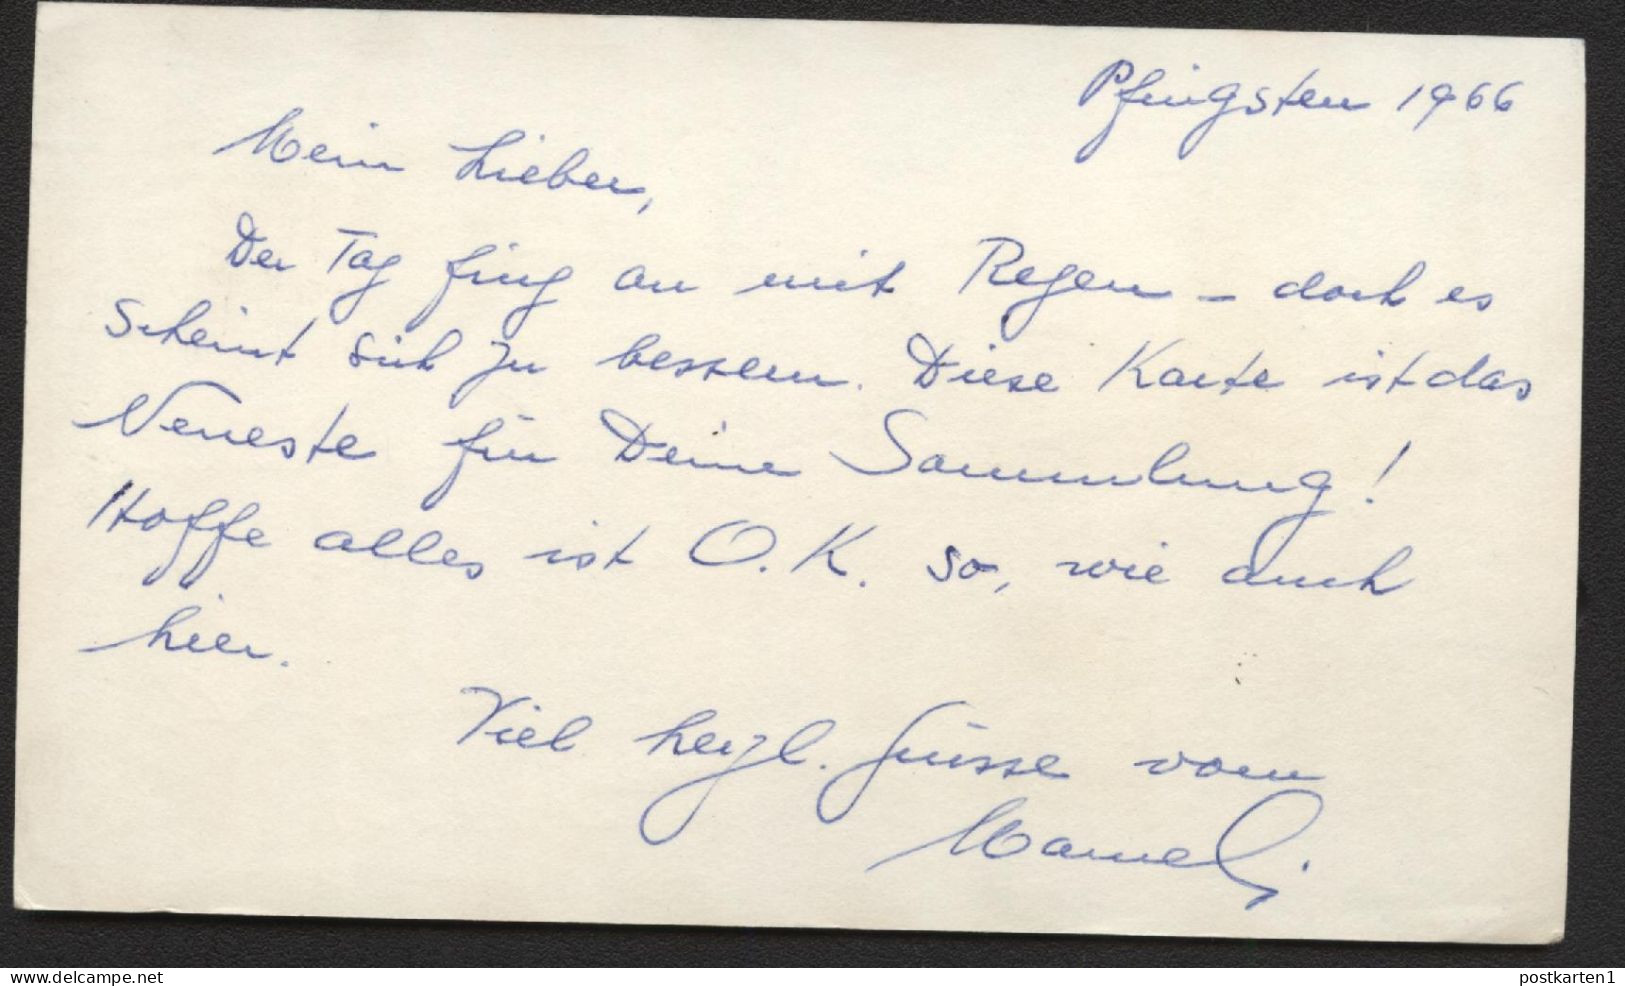 Pfingsten 1966
Mein Lieber,
Der Tag fing an mit Regen – doch es
scheint sich zu bessern. Diese Karte ist das
Neueste für Deine Sammlung!
Hoffe alles ist O.K. so, wie auch
hier.
Viel herzl. Grüsse vom
delcampe.net
postkarten1